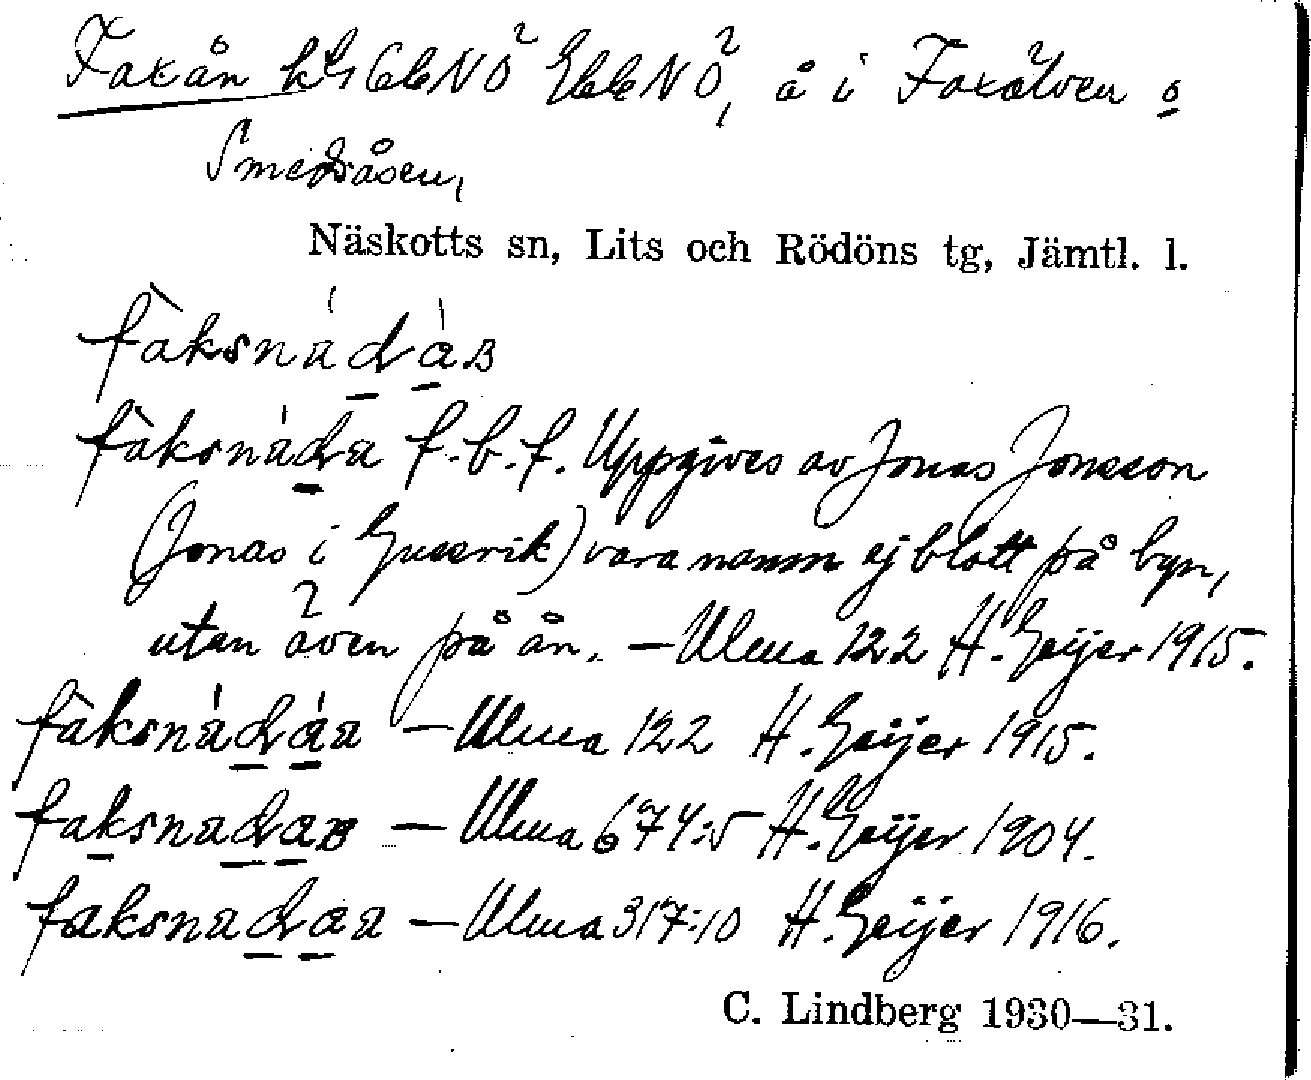 Faxån kbl 6b NÖ Ebbe NÖ, å i Faxälven o
Smedsåsen,
Näskotts sn, Lits och Rödöns tg, Jämtl. l.
fàksnádàʙ
fàksnáda f.b.f. Uppgives av Jonas Jonsson
(Jonas i Gusevik) vara namn ej blott på byn,
utan även på ån. — Ulma 122 H. Geijer 1915.
fàksnádáa — Ulma 122 H. Geijer 1915.
faksnadaʙ — Ulma 674:5 H. Geijer 1904.
faksnadaa — Ulma 317:10 H. Geijer 1916.
C. Lindberg 1930—31.